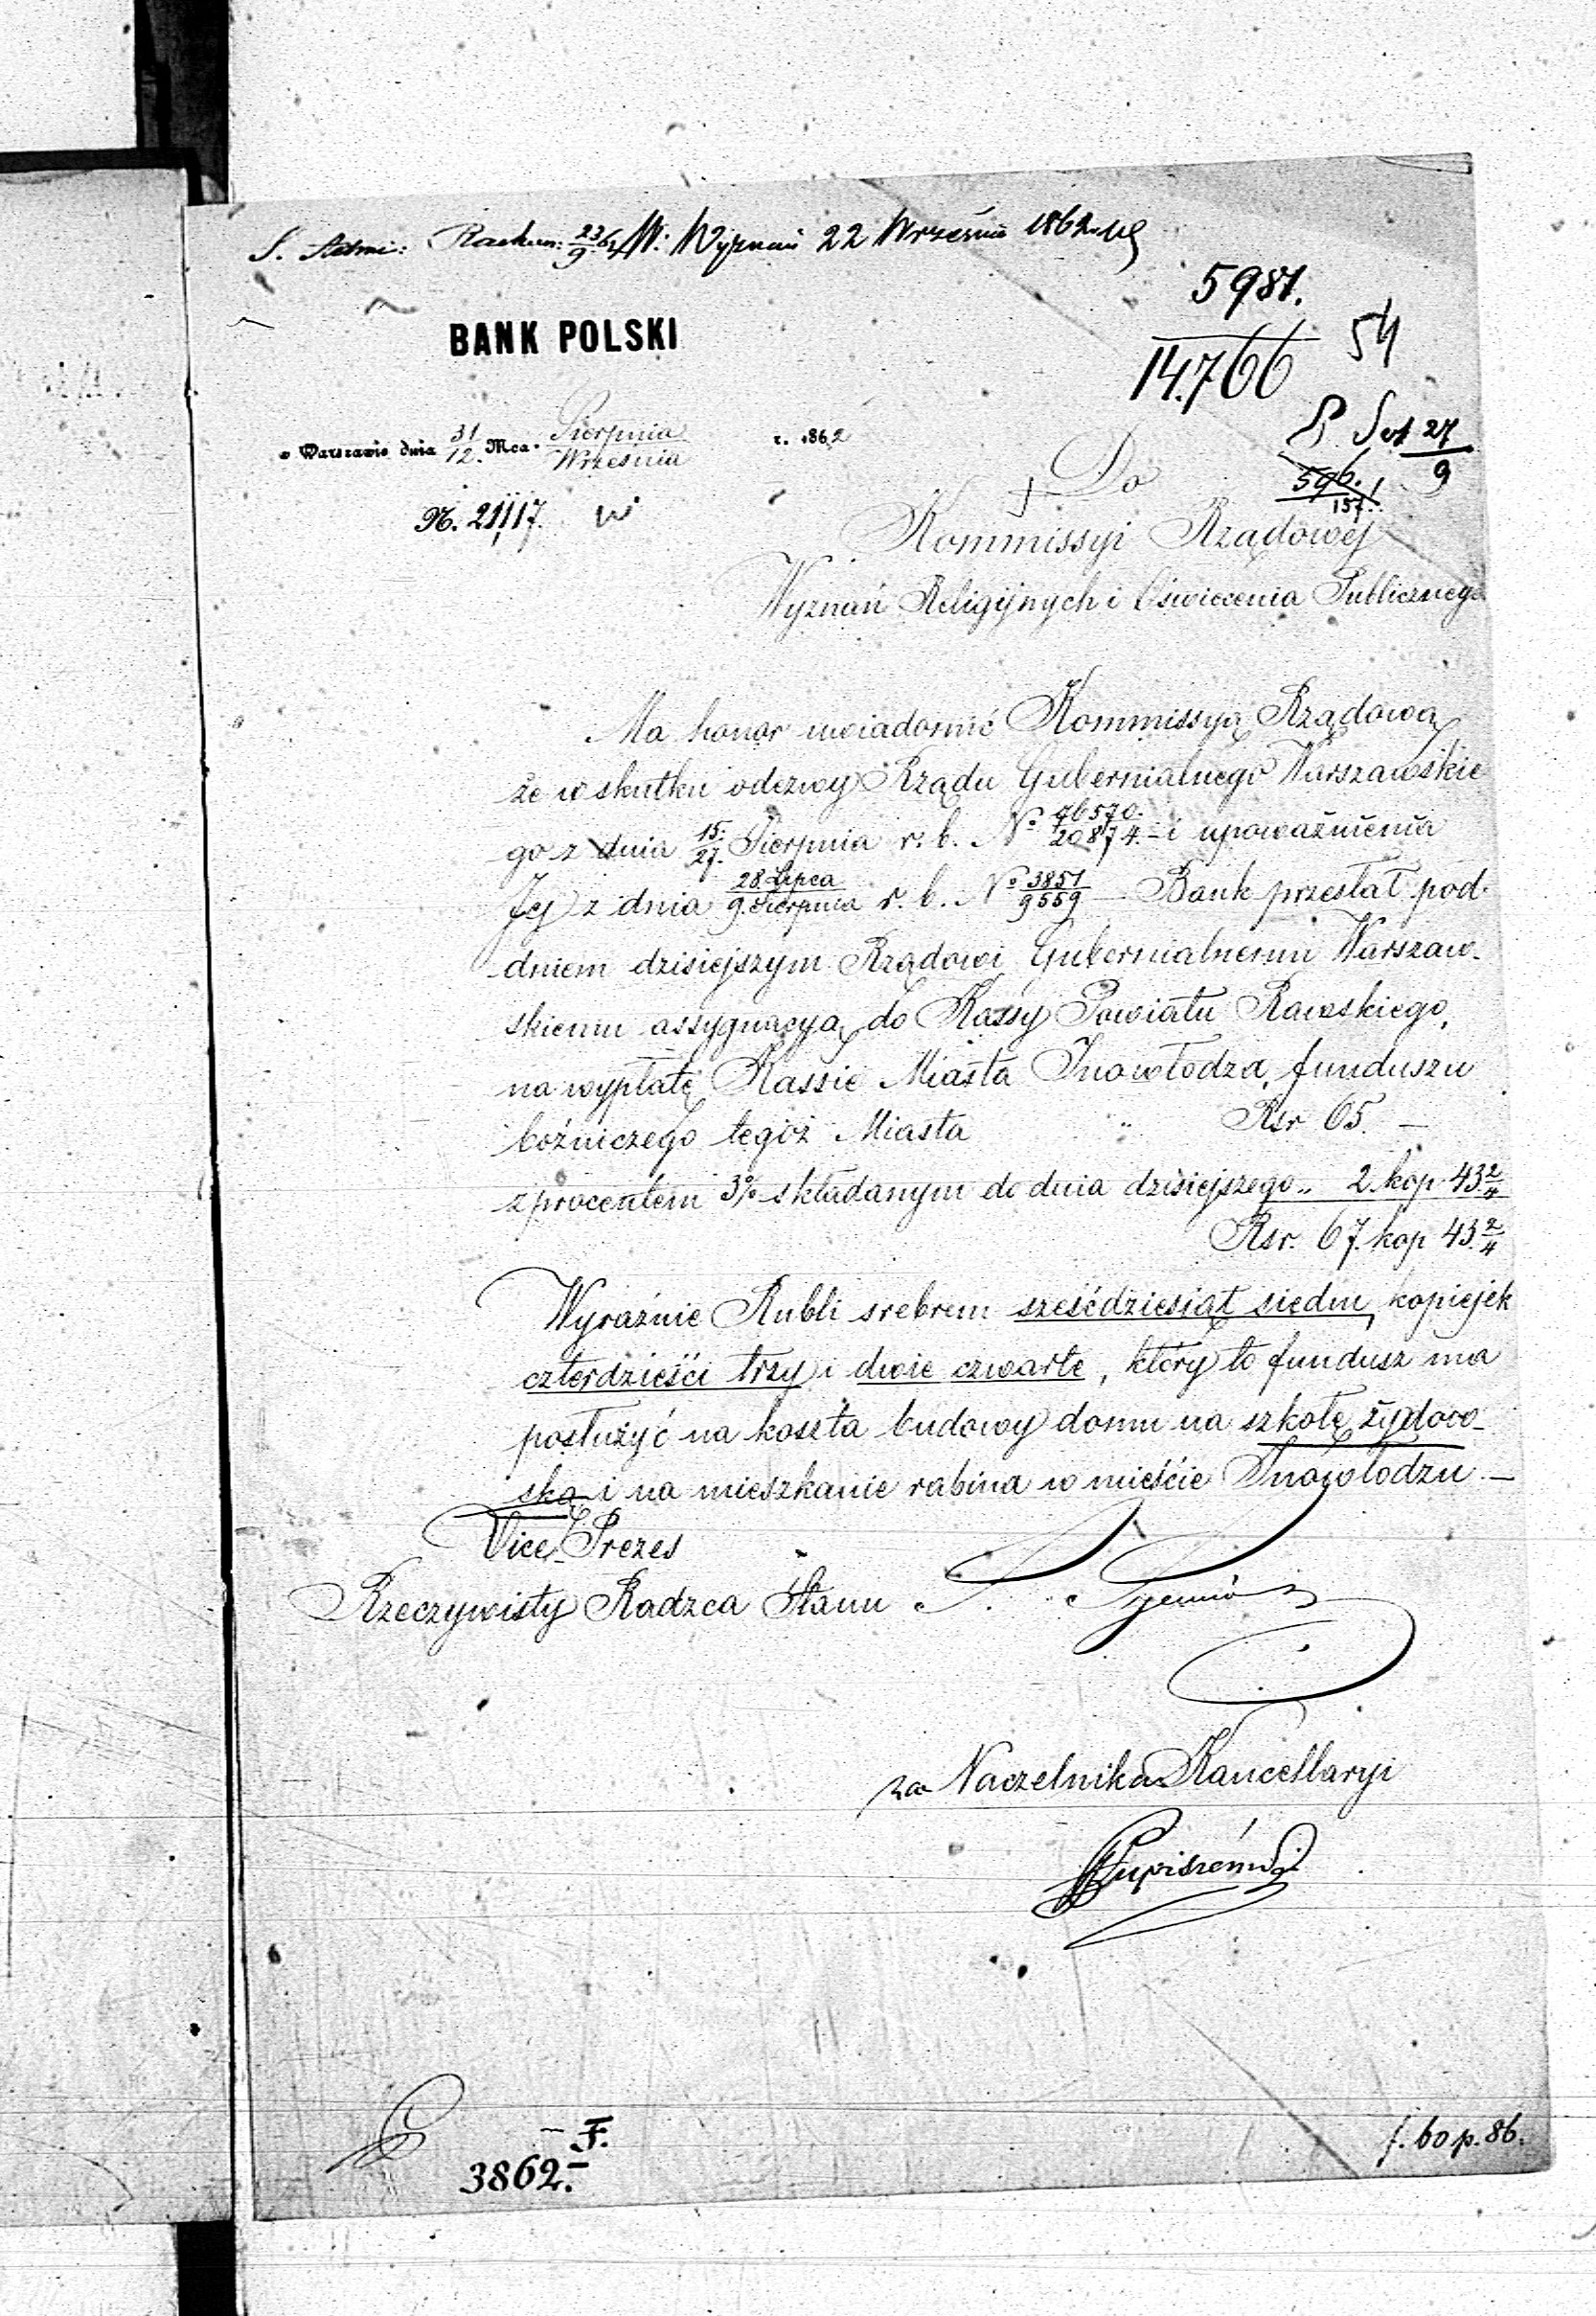 Rachun: 23/9 62 W. Wyznań 22 Września 1862
5981.
14.766
54
27/9
BANK POLSKI
w Warszawie dnia 31/12. Mca Sierpnia/Września r. 1862
596./157.
N. 21,117.
Do
Kommissyi Rządowej
Wyznań Religijnych i Oświecenia Publicznego
Ma honor uwiadomić Kommissyą Rządową
że w skutku odezwy Rządu Gubernialnego Warszawskie
go z dnia 15./27. Sierpnia r. b. No 76570./20874. – i upoważnienia
Jej z dnia 28 Lipca/9. Sierpnia r. b. No 3851/9559 – Bank przesłał pod
dniem dzisiejszym Rządowi Gubernialnemu Warszaw-
skiemu assygnacyą do Kassy Powiatu Rawskiego,
na wypłatę Kassie Miasta Inowłodza, funduszu
bóżniczego tegoż Miasta " Rsr 65. –
z procentem 3% składanym do dnia dzisiejszego „ 2 kop. 43 2/4
Rsr. 67. kop 43. 2/4
Wyraźnie Rubli srebrem sześćdziesiąt siedm, kopiejek
czterdzieści trzy i dwie czwarte, który to fundusz ma
posłużyć na koszta budowy domu na szkołę żydow-
ską i na mieszkanie rabina w mieście Inowłodzu. –
Vice-Prezes
Rzeczywisty Radzca Stanu
za Naczelnika Kancellaryi
F.
3862.
f. 60 p. 86.